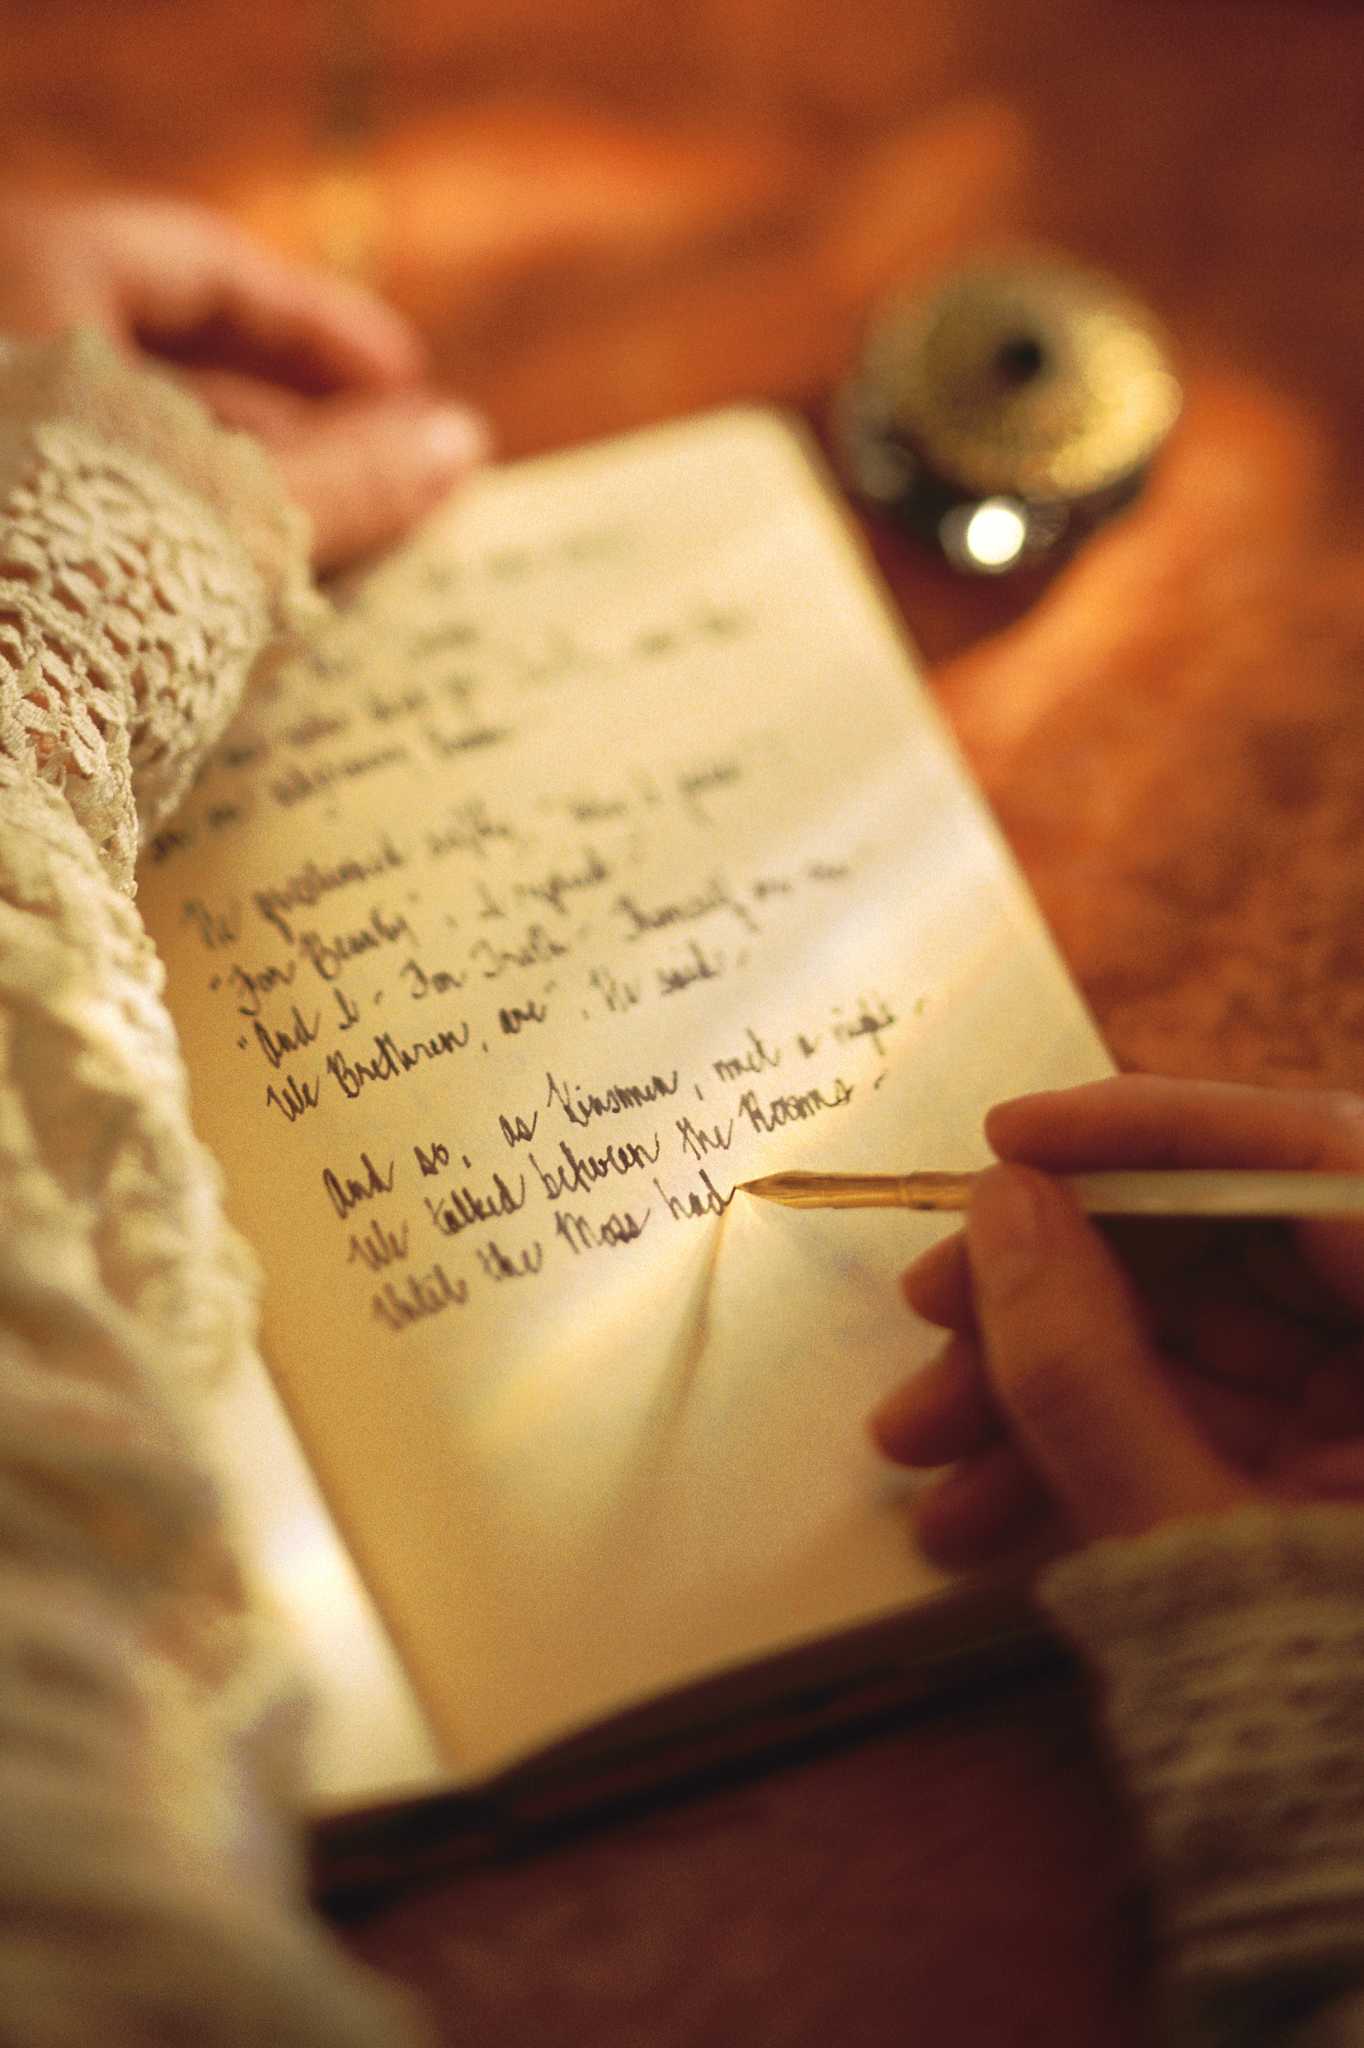 in an adjoining Room
He questioned softly, "Why I
"For Beauty", I replied -
"And I - For Truth - Themself are One -
We Brethren, are", He said -
And so, as Kinsmen, met a night -
We talked between the Rooms -
Until the Moss had